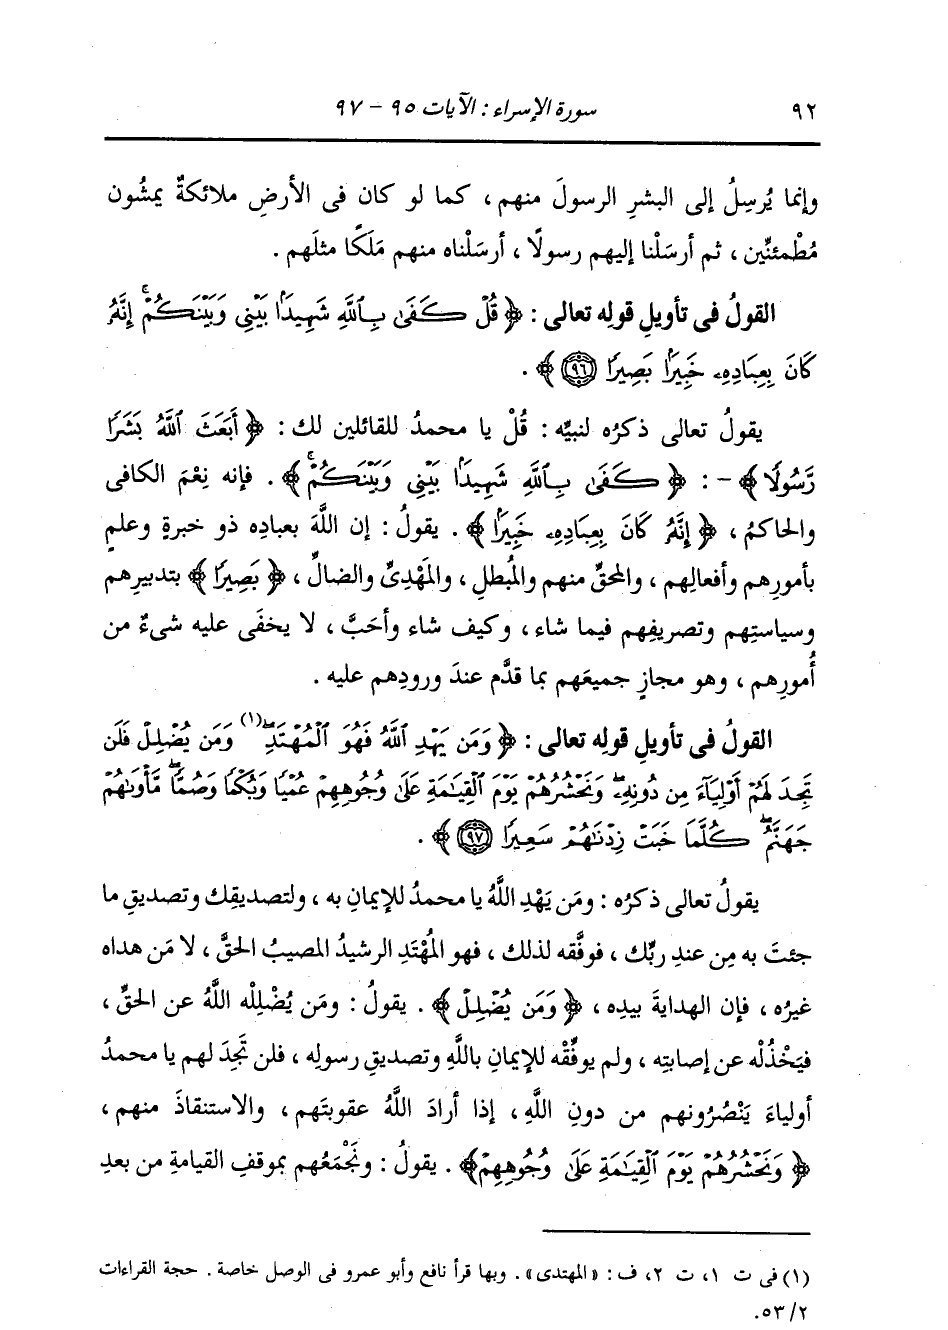 ٩٢ سورة الإسراء : الآيات ٩٥ - ٩٧
وإنما يُرسِلُ إلى البشرِ الرسولَ منهم ، كما لو كان فى الأرضِ ملائكةٌ يمشُون
مُطْمئنِّين ، ثم أرسَلْنا إليهم رسولًا ، أرسَلْناه منهم مَلَكًا مثلَهم .
القولُ فى تأويلِ قولِه تعالى : ﴿ قُلْ كَفَىٰ بِٱللَّهِ شَهِيدًۢا بَيْنِى وَبَيْنَكُمْۚ إِنَّهُۥ
كَانَ بِعِبَادِهِۦ خَبِيرًۢا بَصِيرًا ٩٦ ﴾ .
يقولُ تعالى ذكرُه لنبيِّه : قُلْ يا محمدُ للقائلين لك : ﴿ أَبَعَثَ ٱللَّهُ بَشَرًا
رَّسُولًا ﴾ - : ﴿ كَفَىٰ بِٱللَّهِ شَهِيدًۢا بَيْنِى وَبَيْنَكُمْۚ ﴾ . فإنه نِعْمَ الكافى
والحاكمُ ، ﴿ إِنَّهُۥ كَانَ بِعِبَادِهِۦ خَبِيرًۢا ﴾ . يقولُ : إن اللَّهَ بعبادِه ذو خبرةٍ وعلمٍ
بأمورِهم وأفعالِهم ، والمحقِّ منهم والمُبطلِ ، والمَهْدِىِّ والضالِّ ، ﴿ بَصِيرًا ﴾ بتدبيرِهم
وسياستِهم وتصريفِهم فيما شاء ، وكيف شاء وأحَبَّ ، لا يخفَى عليه شىءٌ من
أُمورِهم ، وهو مجازٍ جميعَهم بما قدَّم عندَ ورودِهم عليه .
القولُ فى تأويلِ قولِه تعالى : ﴿ وَمَن يَهْدِ ٱللَّهُ فَهُوَ ٱلْمُهْتَدِۖ (١) وَمَن يُضْلِلْ فَلَن
تَجِدَ لَهُمْ أَوْلِيَآءَ مِن دُونِهِۦۖ وَنَحْشُرُهُمْ يَوْمَ ٱلْقِيَـٰمَةِ عَلَىٰ وُجُوهِهِمْ عُمْيًا وَبُكْمًا وَصُمًّاۖ مَّأْوَىٰهُمْ
جَهَنَّمُۖ كُلَّمَا خَبَتْ زِدْنَـٰهُمْ سَعِيرًا ٩٧ ﴾ .
يقولُ تعالى ذكرُه : ومَن يَهْدِ اللَّهُ يا محمدُ للإيمانِ به ، ولتصديقِك وتصديقِ ما
جئتَ به مِن عندِ ربِّك ، فوفَّقه لذلك ، فهو المُهْتَدِ الرشيدُ المصيبُ الحقَّ ، لا مَن هداه
غيرُه ، فإن الهدايةَ بيدِه ، ﴿ وَمَن يُضْلِلْ ﴾ . يقولُ : ومَن يُضْلِلْه اللَّهُ عن الحقِّ ،
فيَخْذُلْه عن إصابتِه ، ولم يوفِّقْه للإيمانِ باللَّهِ وتصديقِ رسولِه ، فلن تجِدَ لهم يا محمدُ
أولياءَ يَنْصُرُونهم من دونِ اللَّهِ ، إذا أرادَ اللَّهُ عقوبتَهم ، والاستنقاذَ منهم ،
﴿ وَنَحْشُرُهُمْ يَوْمَ ٱلْقِيَـٰمَةِ عَلَىٰ وُجُوهِهِمْ ﴾ . يقولُ : ونَجْمَعُهم بموقفِ القيامةِ من بعدِ
(١) فى ت ١، ت ٢، ف : «المهتدى» . وبها قرأ نافع وأبو عمرو فى الوصل خاصة . حجة القراءات
٢/ ٥٣.